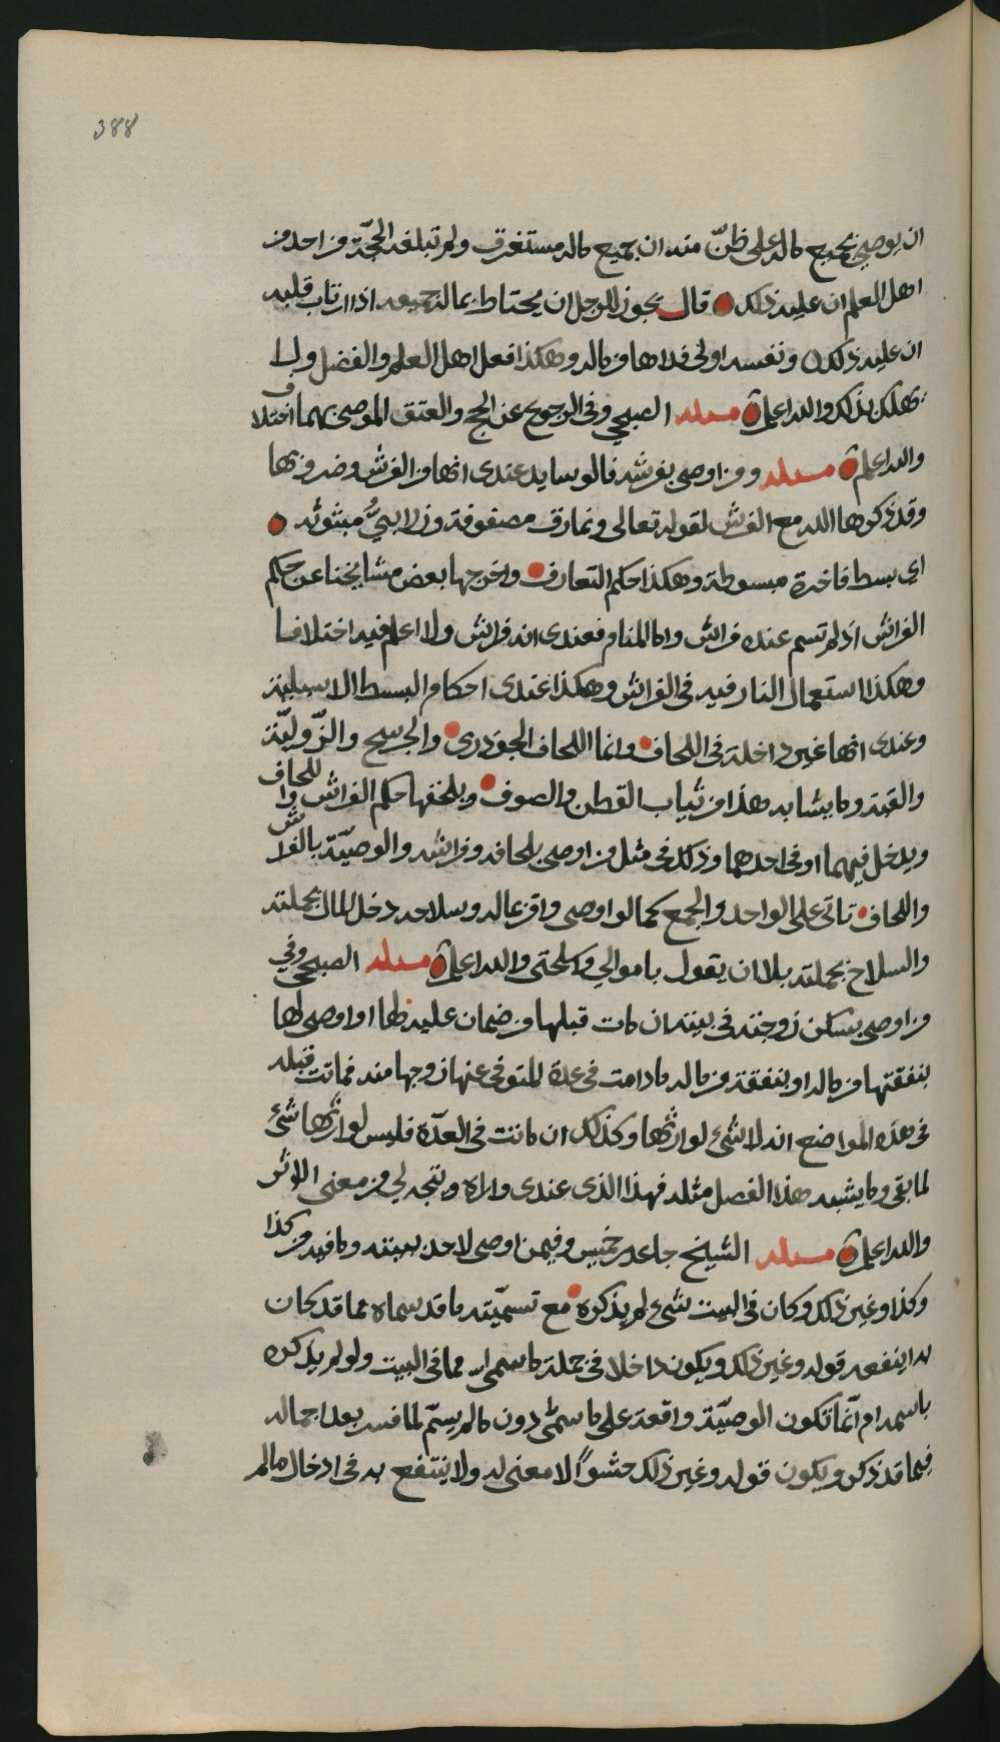 388
ان يوصي بجميع ماله على ظنّ منه ان جميع ماله مستغرق ولم تبلغه الحجّة من احد من
اهل العلم ان عليه ذلك قال يجوز للرجل ان يحتاط بماله جميعه اذا ارتاب قلبه
ان عليه ذلك ونفسه اولى فداها من ماله وهكذا فعل اهل العلم والفضل ولا
يهلك بذلك والله اعلم مسئلة الصبحي وفي الرجوع عن الحج والعتق الموصى بهما اختلاف
والله اعلم مسئلة ومن اوصى بفرشه فالوسايد عندي انها من الفرش وضروبها
وقد ذكرها الله مع الفرش لقوله تعالى ونمارق مصفوفة وزرابيُّ مبثوثه
اي بسط فاخرة مبسوطة وهكذا حكم التعارف واخرجها بعض مشايخنا عن حكم
الفراش اذ لم تسم عنده فراش واما المنام فعندي انه فراش ولا اعلم فيه اختلافا
وهكذا استعمال الناس فيه في الفراش وهكذا عندي احكام البسط الا
وعندي انها غير داخلة في اللحاف وانما اللحاف الجودري والزّوليّة
والقبة وما يشابه هذا من ثياب القطن والصوف ويلحقها حكم الفراش واللحاف
ويدخل فيهما او في احدهما وذلك في مثل من اوصى بلحافه وفراشه والوصيّة بالفراش
واللحاف تاتي على الواحد والجمع كما لو اوصى واقر بماله وسلاحه دخل المال بجملته
والسلاح بجملته بلا ان يقول باموالي واسلحتي والله اعلم مسئلة الصبحي وفي
من اوصى بسكن زوجته في بيته ان مات قبلها من ضمان عليه لها او اوصى لها
بنفقتها من ماله او بنفقة من ماله ما دامت في عدة المتوفى عنها زوجها منه فماتت قبله
في هذه المواضع انه لا شيء لوارثها وكذلك ان ماتت في العدّة فليس لوارثها شئ
لما بقي وما يشبه هذا الفصل مثله فهذا الذي عندي واراه ويتجه لي من معنى الاثر
والله اعلم مسئلة الشيخ جاعد بن خميس وفيمن اوصى لاحد ببيته وما فيه من كذا
وكذا وغير ذلك وكان في البيت شيء لم يذكره مع تسميّته ما قد سماه مما قد كان
له اينفعه قوله وغير ذلك ويكون داخلا في جملة ما سمى له مما في البيت ولو لم يذكره
باسمه ام انّما تكون الوصيّة واقعة على ما سمّى دون ما لم يسمّ لما فسره بعد اجماله
فيما قد ذكر ويكون قوله وغير ذلك حشواً لا معنى له ولا ينتفع به في ادخال مالم